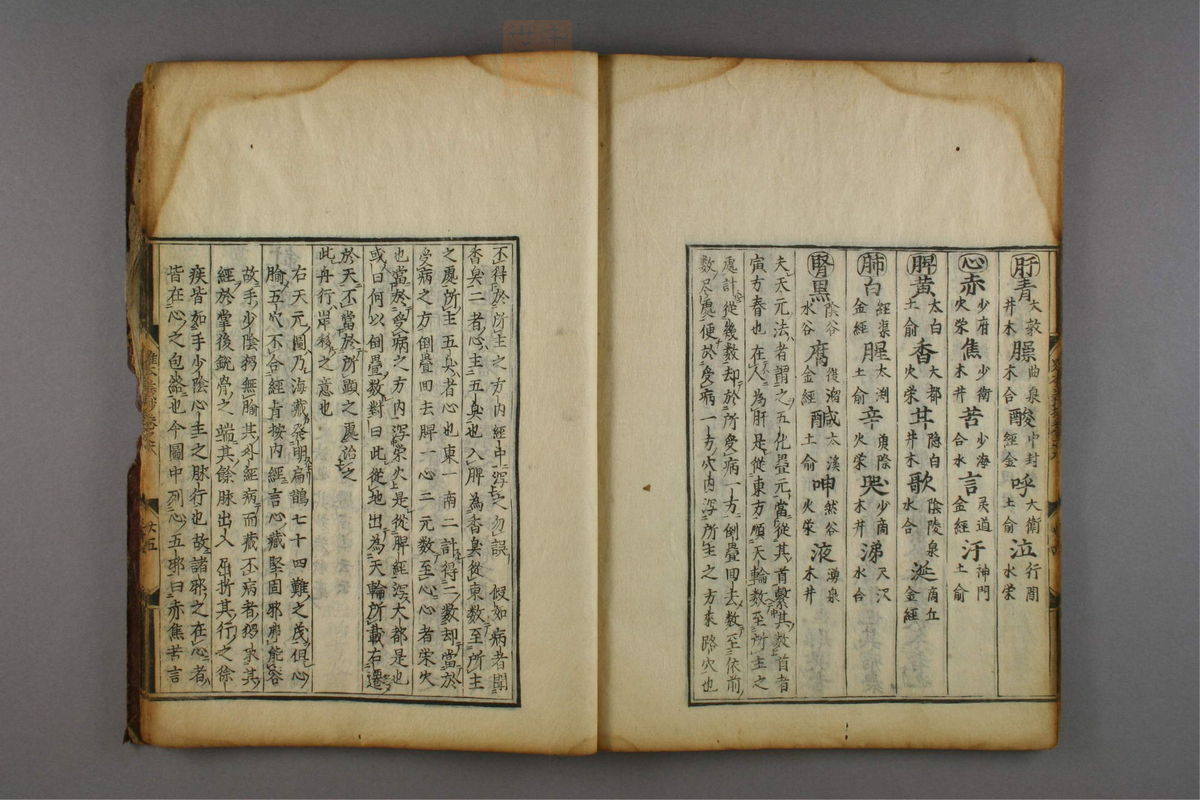 肝青大敦井木臊曲泉木合酸中封經金呼大衝土俞泣行間水榮
心赤少府火榮焦少衝木井苦少海合水言灵道金經汗神門土俞
脾黄太白土俞香大都火榮甘隐白井木歌陰陵泉水合涎商丘金經
肺白經渠金經腥太渊土俞辛魚際火榮哭少商木井涕尺沢水合
腎黒陰谷水谷腐復溜金經鹹太溪土俞呻然谷火榮液湧泉木井
夫天元法者謂之五化疊元當從其首繫其数首者
寅方春也在人為肝是從東方順天輪数至所主之
處計從幾数却於所受病一方倒疊回去数至依前
数尽處便於受病一方穴内泻所主之方來路穴也
不得於所主之方内經中泻之勿誤 假如病者聞
香臭二者心主五臭也入脾為香臭從東数至所主
之處所主五臭者心也東一南二計得二数却當於
受病之方倒疊回去脾一心二元数至心心者榮火
也當於受病之方内泻榮火是從脾經泻大都是也
或曰何以倒疊数對曰此從地出為天輪所載右遷
於天不當於所顕之處治之
此舟行岸移之意也
右天元圖乃海藏發明扁鵲七十四難之茂但心
腧五穴不合經肯按内經言心藏堅固邪弗能容
故手少陰獨無腧其外經病而藏不病者獨取其
經於掌後銳骨之端其餘脉出入屈折其行之徐
疾皆如手少陰心主之脉行也故諸邪之在心者
皆在心之包絡也今圖中列心五邪曰赤焦苦言